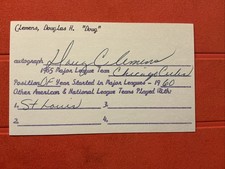 Clemens, Douglas H. "Doug"
autograph Doug Clemens
1965 Major League Team Chicago Cubs
Position OF Year Started in Major Leagues - 1960
Other American & National League Teams Played With
1. St Louis
2.
3.
4.